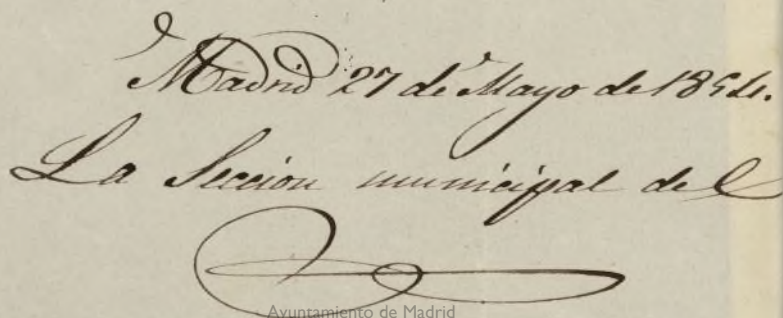 Madrid 27 de Mayo de 1854.
La Seccion municipal del
Ayuntamiento de Madrid